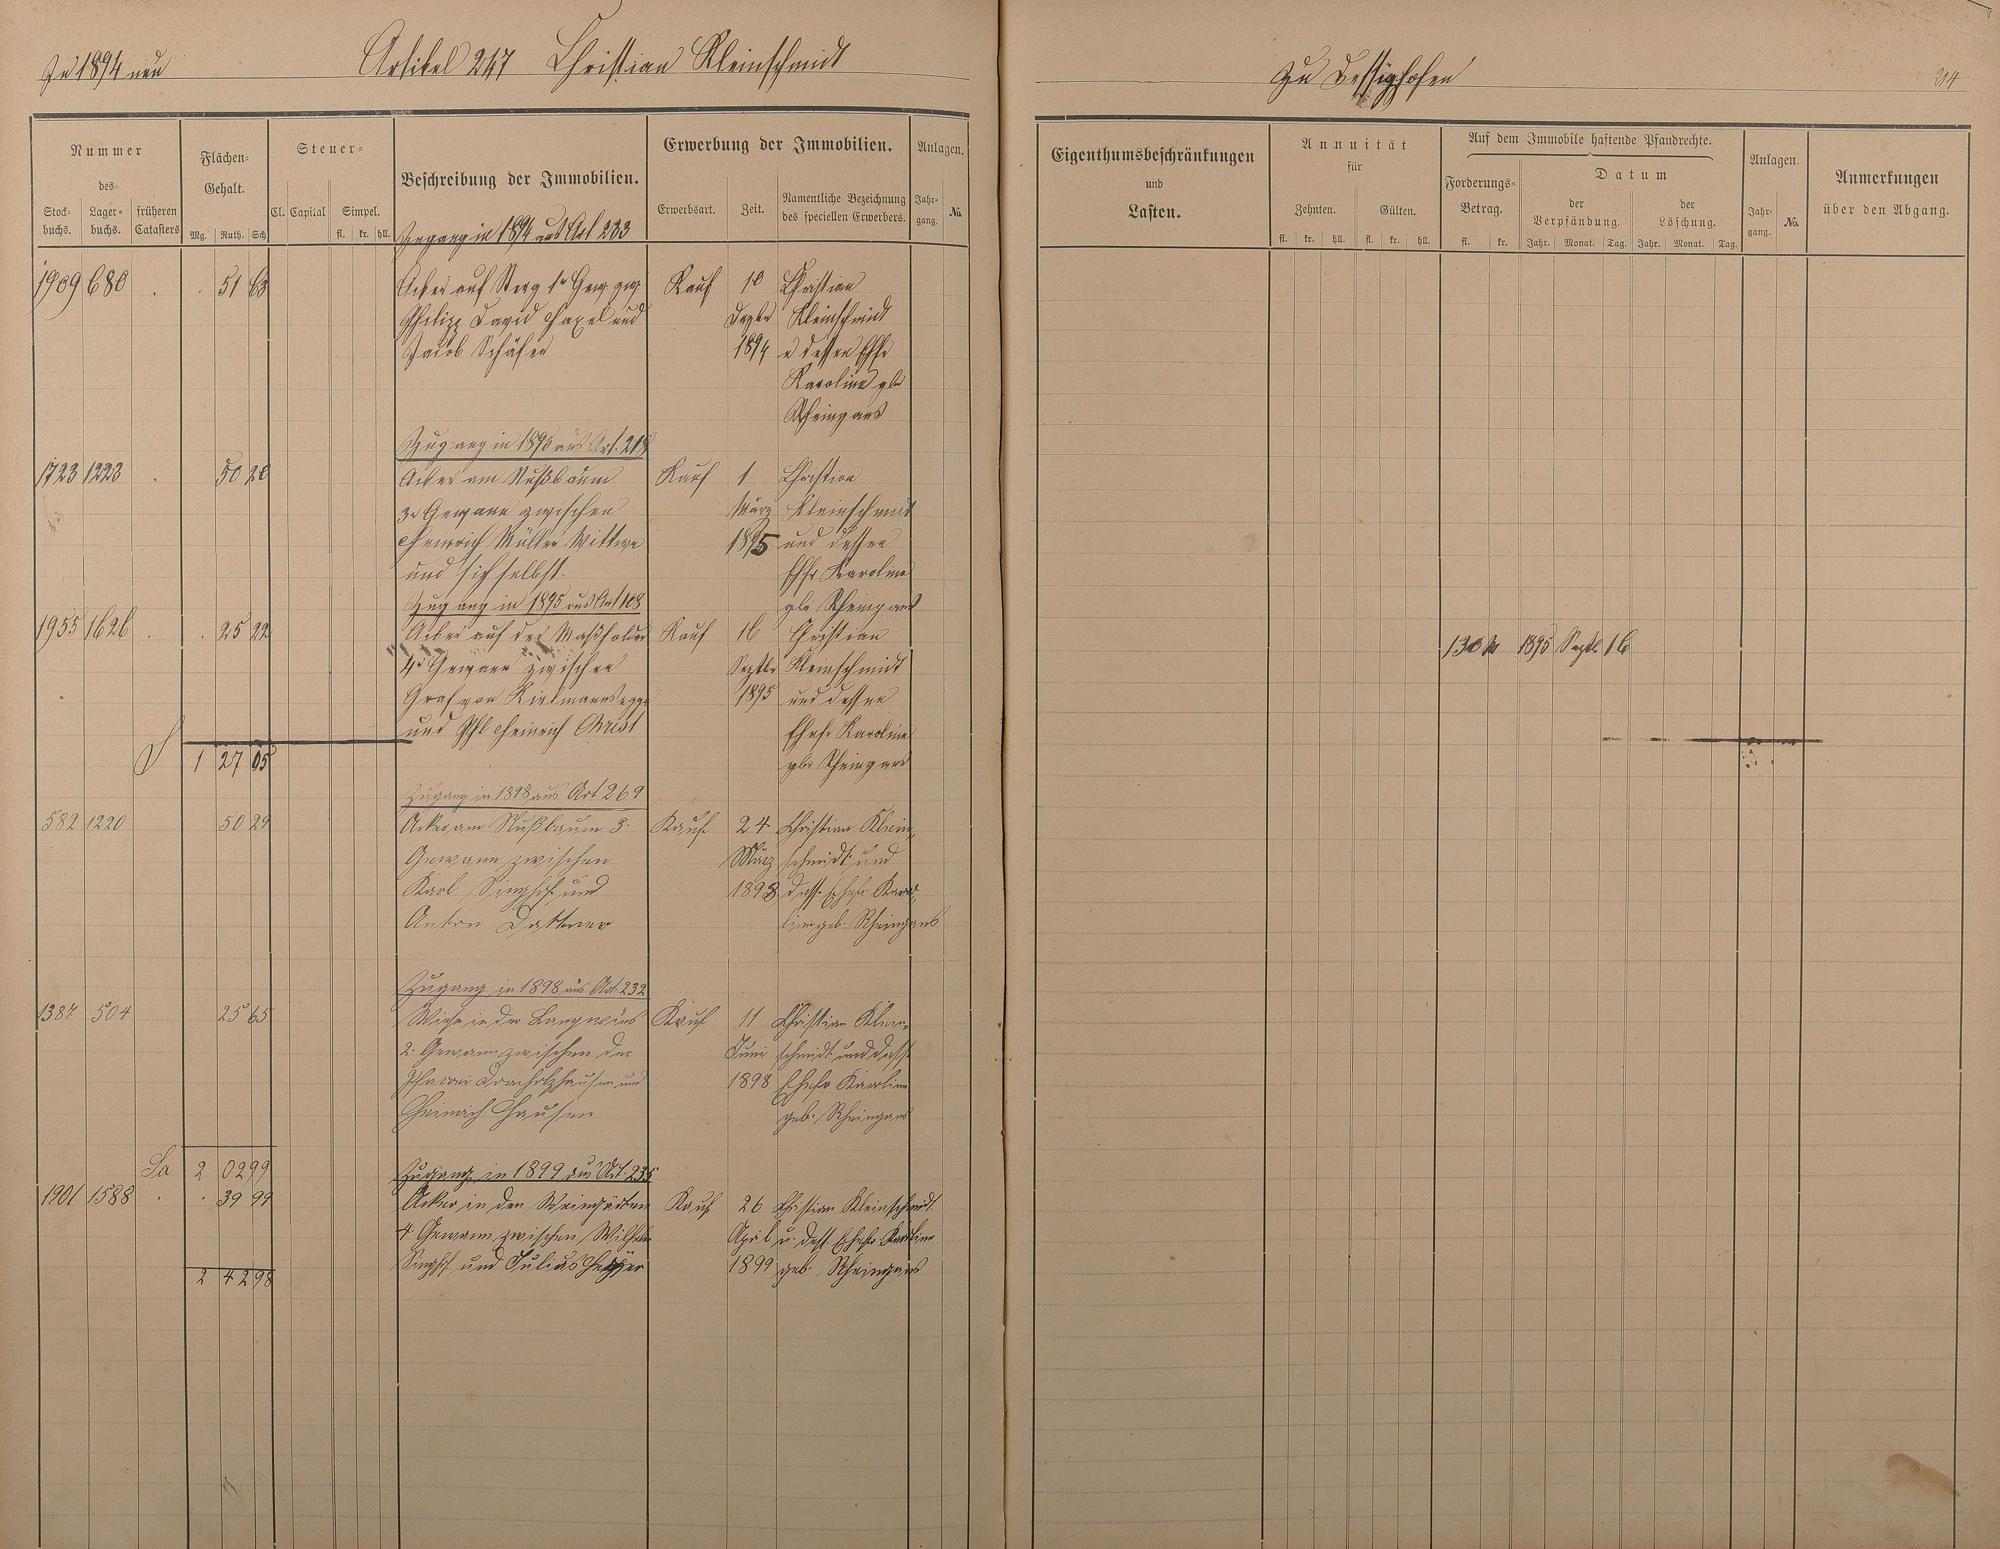 In 1894 neu
Artikel 247 Christian Kleinschmidt
zu Dessighofen
214
Nummer
des
Stock-
buchs.
Lager-
buchs.
früheren
Catasters
Flächen-
Gehalt.
Mg. Ruth. Sch
Steuer-
Cl. Capital Simpel.
fl. kr. hll.
Beschreibung der Immobilien.
Erwerbung der Immobilien.
Erwerbsart. Zeit.
Namentliche Bezeichnung
des speciellen Erwerbers.
Anlagen.
Jahr-
gang.
No.
Eigenthumsbeschränkungen
und
Lasten.
Annuität
für
Zehnten. Gülten.
fl. kr. hll. fl. kr. hll.
Auf dem Immobile haftende Pfandrechte.
Forderungs-
Betrag.
fl. kr.
Datum
der
Verpfändung.
der
Löschung.
Jahr. Monat. Tag. Jahr. Monat. Tag.
Anlagen.
Jahr-
gang.
No.
Anmerkungen
über den Abgang.
Zugang in 1894 aus Art 233
1909 680 51 63 Acker auf Kauf 10 Christian
Philipp David und Dezbr Kleinschmidt
Jacob Schäfer 1894 u dessen Ehfr
Karoline gb
Rheingans
Zugang in 1895 aus Art. 218
1723 1223 50 20 Acker am Nußbaum Kauf 1 Christian
3r Gewann zwischen März Kleinschmidt
Heinrich Müller Wittwe 1895 und dessen
und sich selbst. Ehfr Karoline
Zugang in 1895 aus Art 108 gb Rheingans
1955 1626 25 22 Acker auf der Kauf 16 Christian
4r Gewann zwischen Septbr Kleinschmidt
Graf von Kielmannsegge 1895 und dessen
und Phl Heinrich Ehefr Karoline
1 27 05 gb Rheingans
130 M 1895 Septb. 16
Zugang in 1898 aus Art 269
582 1220 50 29 Acker am Nußbaum 3. Kauf 24 Christian Klein-
Gewann zwischen März schmidt und
Karl Singhof und 1898 dess. Ehefr. Karo-
Anton Dattner line geb. Rheingans
Zugang in 1898 aus Art. 232
1387 504 25 65 Wiese in der Langwies Kauf 11 Christian Klein-
2. Gewann zwischen der Juni schmidt und dess.
Pfarrei Dornholzhausen und 1898 Ehefr Karoline
Heinrich Hausen geb. Rheingans
Sa 2 02 99
Zugang in 1899 aus Art. 235
1901 1588 39 99 Acker in den Weingärten Kauf 26 Christian Kleinschmidt
4. Gewann zwischen Wilhelm April u. dess. Ehefr. Karoline
Singhof und Julius 1899 geb. Rheingans
2 42 98